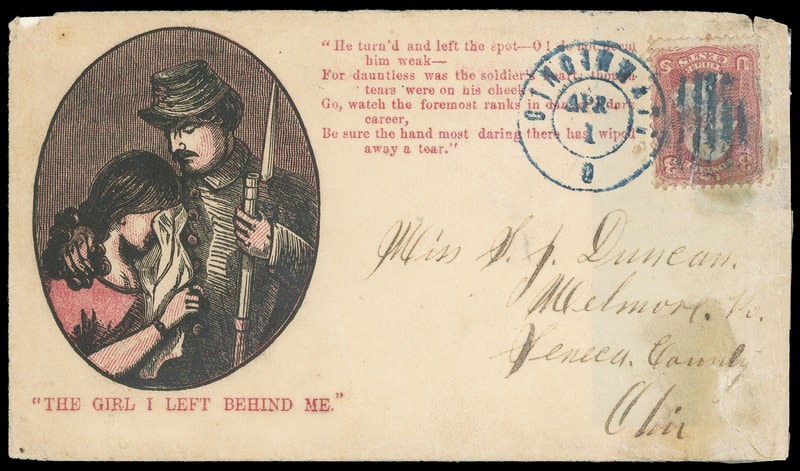 "He turn'd and left the spot—O! do not deem
him weak—
For dauntless was the soldier's heart, though
tears were on his cheek
Go, watch the foremost ranks in danger's dark
career,
Be sure the hand most daring there has wiped
away a tear."
CINCINNATI
APR
1
O
3 3
Miss S. J. Duncan.
Melmore. Po.
Seneca. County
Ohio
"THE GIRL I LEFT BEHIND ME."